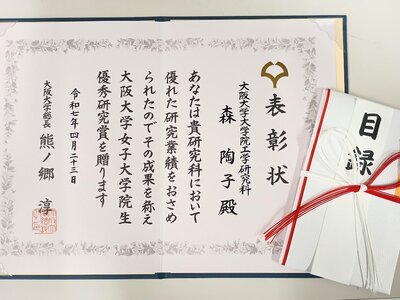 表彰状
大阪大学大学院工学研究科
森 陶子 殿
あなたは貴研究科において
優れた研究業績をおさめ
られたのでその成果を称え
大阪大学女子大学院生
優秀研究賞を贈ります
令和七年四月二十三日
大阪大学総長 熊ノ郷 淳
目録